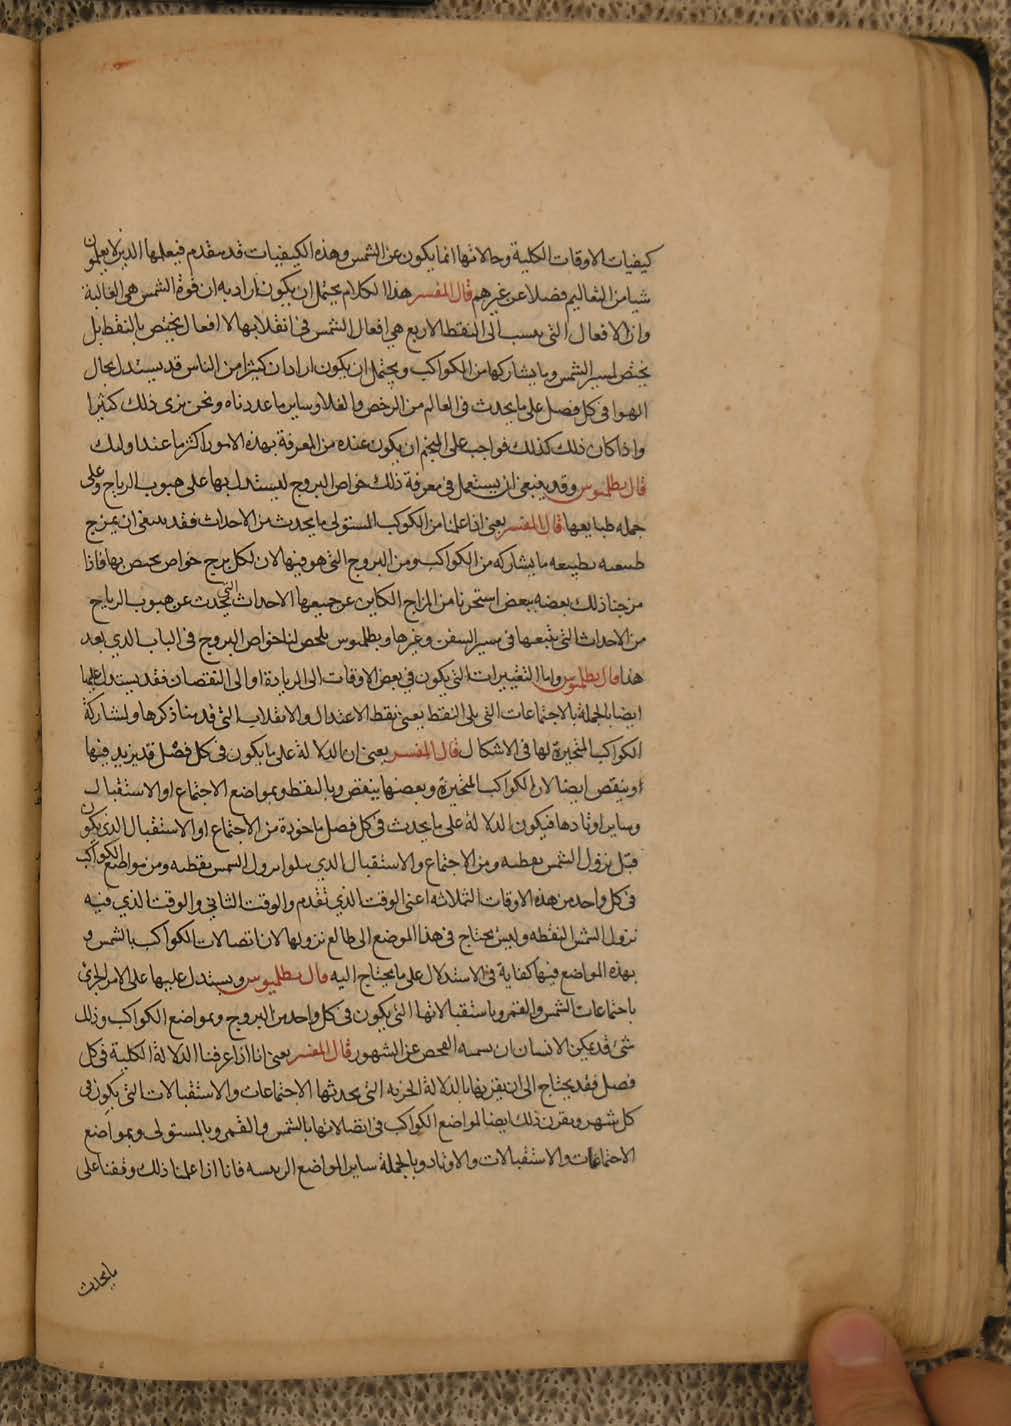 كيفيات الاوقات الكلية وحالاتها انما يكون عن الشمس وهذه الكيفيات قد سقدم فيعلمها الذين لا يعلمون
شيا من التعاليم فضلا عن غيرهم قال المفسر هذا الكلام يحتمل ان يكون اراد به ان قوة الشمس هي الغالبة
وان الافعال التي تنسب الى النقط الاربع هي افعال الشمس في انقلابها لا افعال يختص بالنقط بل
يختص لسير الشمس وما يشاركها من الكواكب ويحتمل ان يكون اراد ان كثيرا من الناس قد يستدل بحال
الهوا في كل فصل على ما يحدث في العالم من الرخص والغلا وساير ما عددناه ونحن نرى ذلك كثيرا
واذا كان ذلك كذلك فواجب على المنجم ان يكون عنده من المعرفة بهذه الامور اكثر ما عند اوليك
قال بطلميوس وقد ينبغي ان يستعمل في معرفة ذلك خواص البروج ليستدل بها على هبوب الرياح وعلى
جمله طبايعها قال المفسر يعني اذا علمنا من الكوكب المستولي ما يحدث من الاحداث فقد ينبغي ان يمزج
طبيعه بطبيعه ما يشاركه من الكواكب ومن البروج التي هو فيها لان لكل برج خواص يختص بها فاذا
مزجنا ذلك بعضه ببعض استخرنا من المزاج الكاين عن جميعها الاحداث التي يحدث عن هبوب الرياح
من الاحداث التي يتبعها في سير السفن وغيرها وبطلميوس يلخص لنا خواص البروج في الباب الذي بعد
هذا قال بطلميوس واما التغييرات التي يكون في بعض الاوقات الى الزيادة او الى النقصان فقد يستدل عليها
ايضا بالجملة بالاجتماعات التي يلي النقط يعني نقط الاعتدال والانقلاب التي قدمنا ذكرها ولمشاركة
الكواكب المتحيرة لها في الاشكال قال المفسر يعني ان الدلالة على ما يكون في كل فصل قد يزيد فيها
او ينقص ايضا لان الكواكب المتحيرة وبعضها ينقص وبالنقط وبمواضع الاجتماع او الاستقبال
وساير اوتادها فيكون الدلالة على ما يحدث في كل فصل ماخوذة من الاجتماع او الاستقبال الذي يكون
قبل نزول الشمس بنقطه ومن الاجتماع والاستقبال الذي يتلوا نزول الشمس بنقطه ومن مواضع الكواكب
في كل واحد من هذه الاوقات الثلاثه اعني الوقت الذي تقدم والوقت الثاني والوقت الذي فيه
نزول الشمس النقطه وليس يحتاج في هذا الموضع الى طالع نزولها لان اتصالات الكواكب بالشمس و
بهذه المواضع فيها كفاية في الاستدلال على ما يحتاج اليه قال بطلميوس ويستدل عليها على الامر الجزئ
باجتماعات الشمس والقمر وباستقبالاتها التي يكون في كل واحد من البروج وبمواضع الكواكب وذلك
شئ قد يمكن الانسان ان يسمه الفحص عن الشهور قال المفسر يعني انا اذا عرفنا الدلالة الكلية في كل
فصل فقد يحتاج الى ان يقرن بها بالدلالة الجزيه التي يحدثها الاجتماعات والاستقبالات التي يكون في
كل شهر ويقرن ذلك ايضا لمواضع الكواكب في اتصالاتها بالشمس والقمر وبالمستولى وبمواضع
الاجتماعات والاستقبالات والاوتاد وبالجملة ساير المواضع الريسه فانا اذا علمنا ذلك وقفنا على
ما يحدث